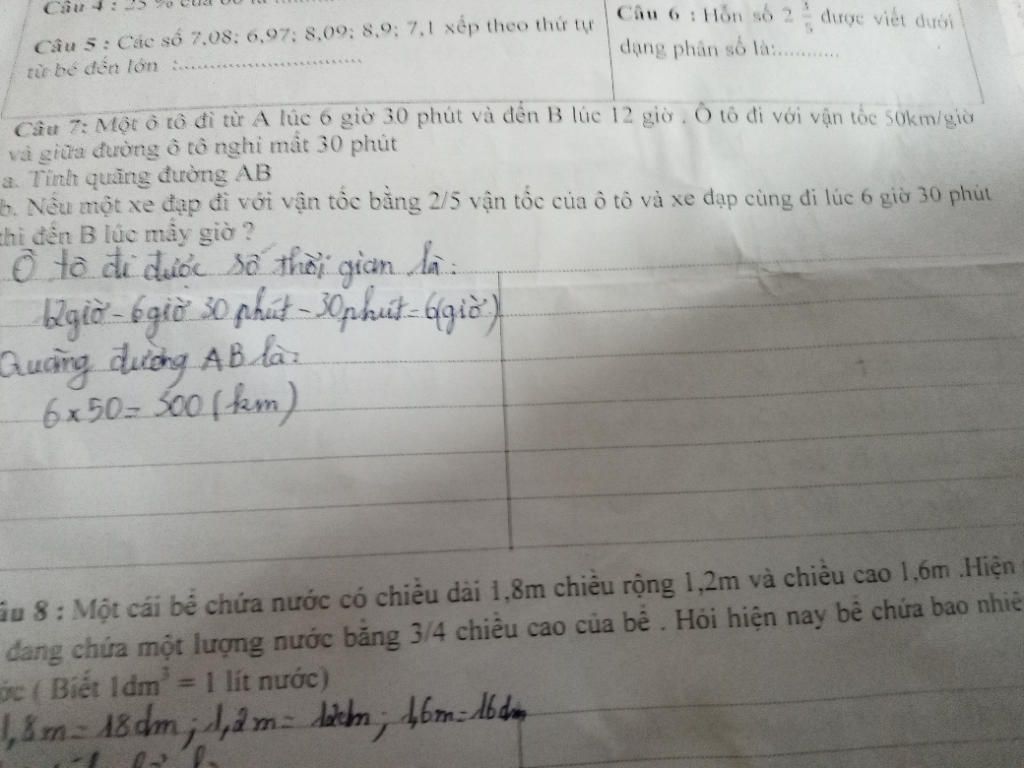 Câu 4 : 25 % của
Câu 5 : Các số 7,08; 6,97; 8,09; 8,9; 7,1 xếp theo thứ tự
từ bé đến lớn :..............................
Câu 6 : Hỗn số 2 3/5 được viết dưới
dạng phân số là:............
Câu 7: Một ô tô đi từ A lúc 6 giờ 30 phút và đến B lúc 12 giờ . Ô tô đi với vận tốc 50km/giờ
và giữa đường ô tô nghỉ mất 30 phút
a. Tính quãng đường AB
b. Nếu một xe đạp đi với vận tốc bằng 2/5 vận tốc của ô tô và xe đạp cùng đi lúc 6 giờ 30 phút
thì đến B lúc mấy giờ ?
Ô tô đi được số thời gian là:
12giờ - 6giờ 30 phút - 30phút = 6(giờ)
Quãng đường AB là:
6 x 50 = 300 (km)
âu 8 : Một cái bể chứa nước có chiều dài 1,8m chiều rộng 1,2m và chiều cao 1,6m .Hiện
đang chứa một lượng nước bằng 3/4 chiều cao của bể . Hỏi hiện nay bể chứa bao nhiê
ớc ( Biết 1dm³ = 1 lít nước)
1,8m = 18dm ; 1,2m = 12dm ; 1,6m = 16dm